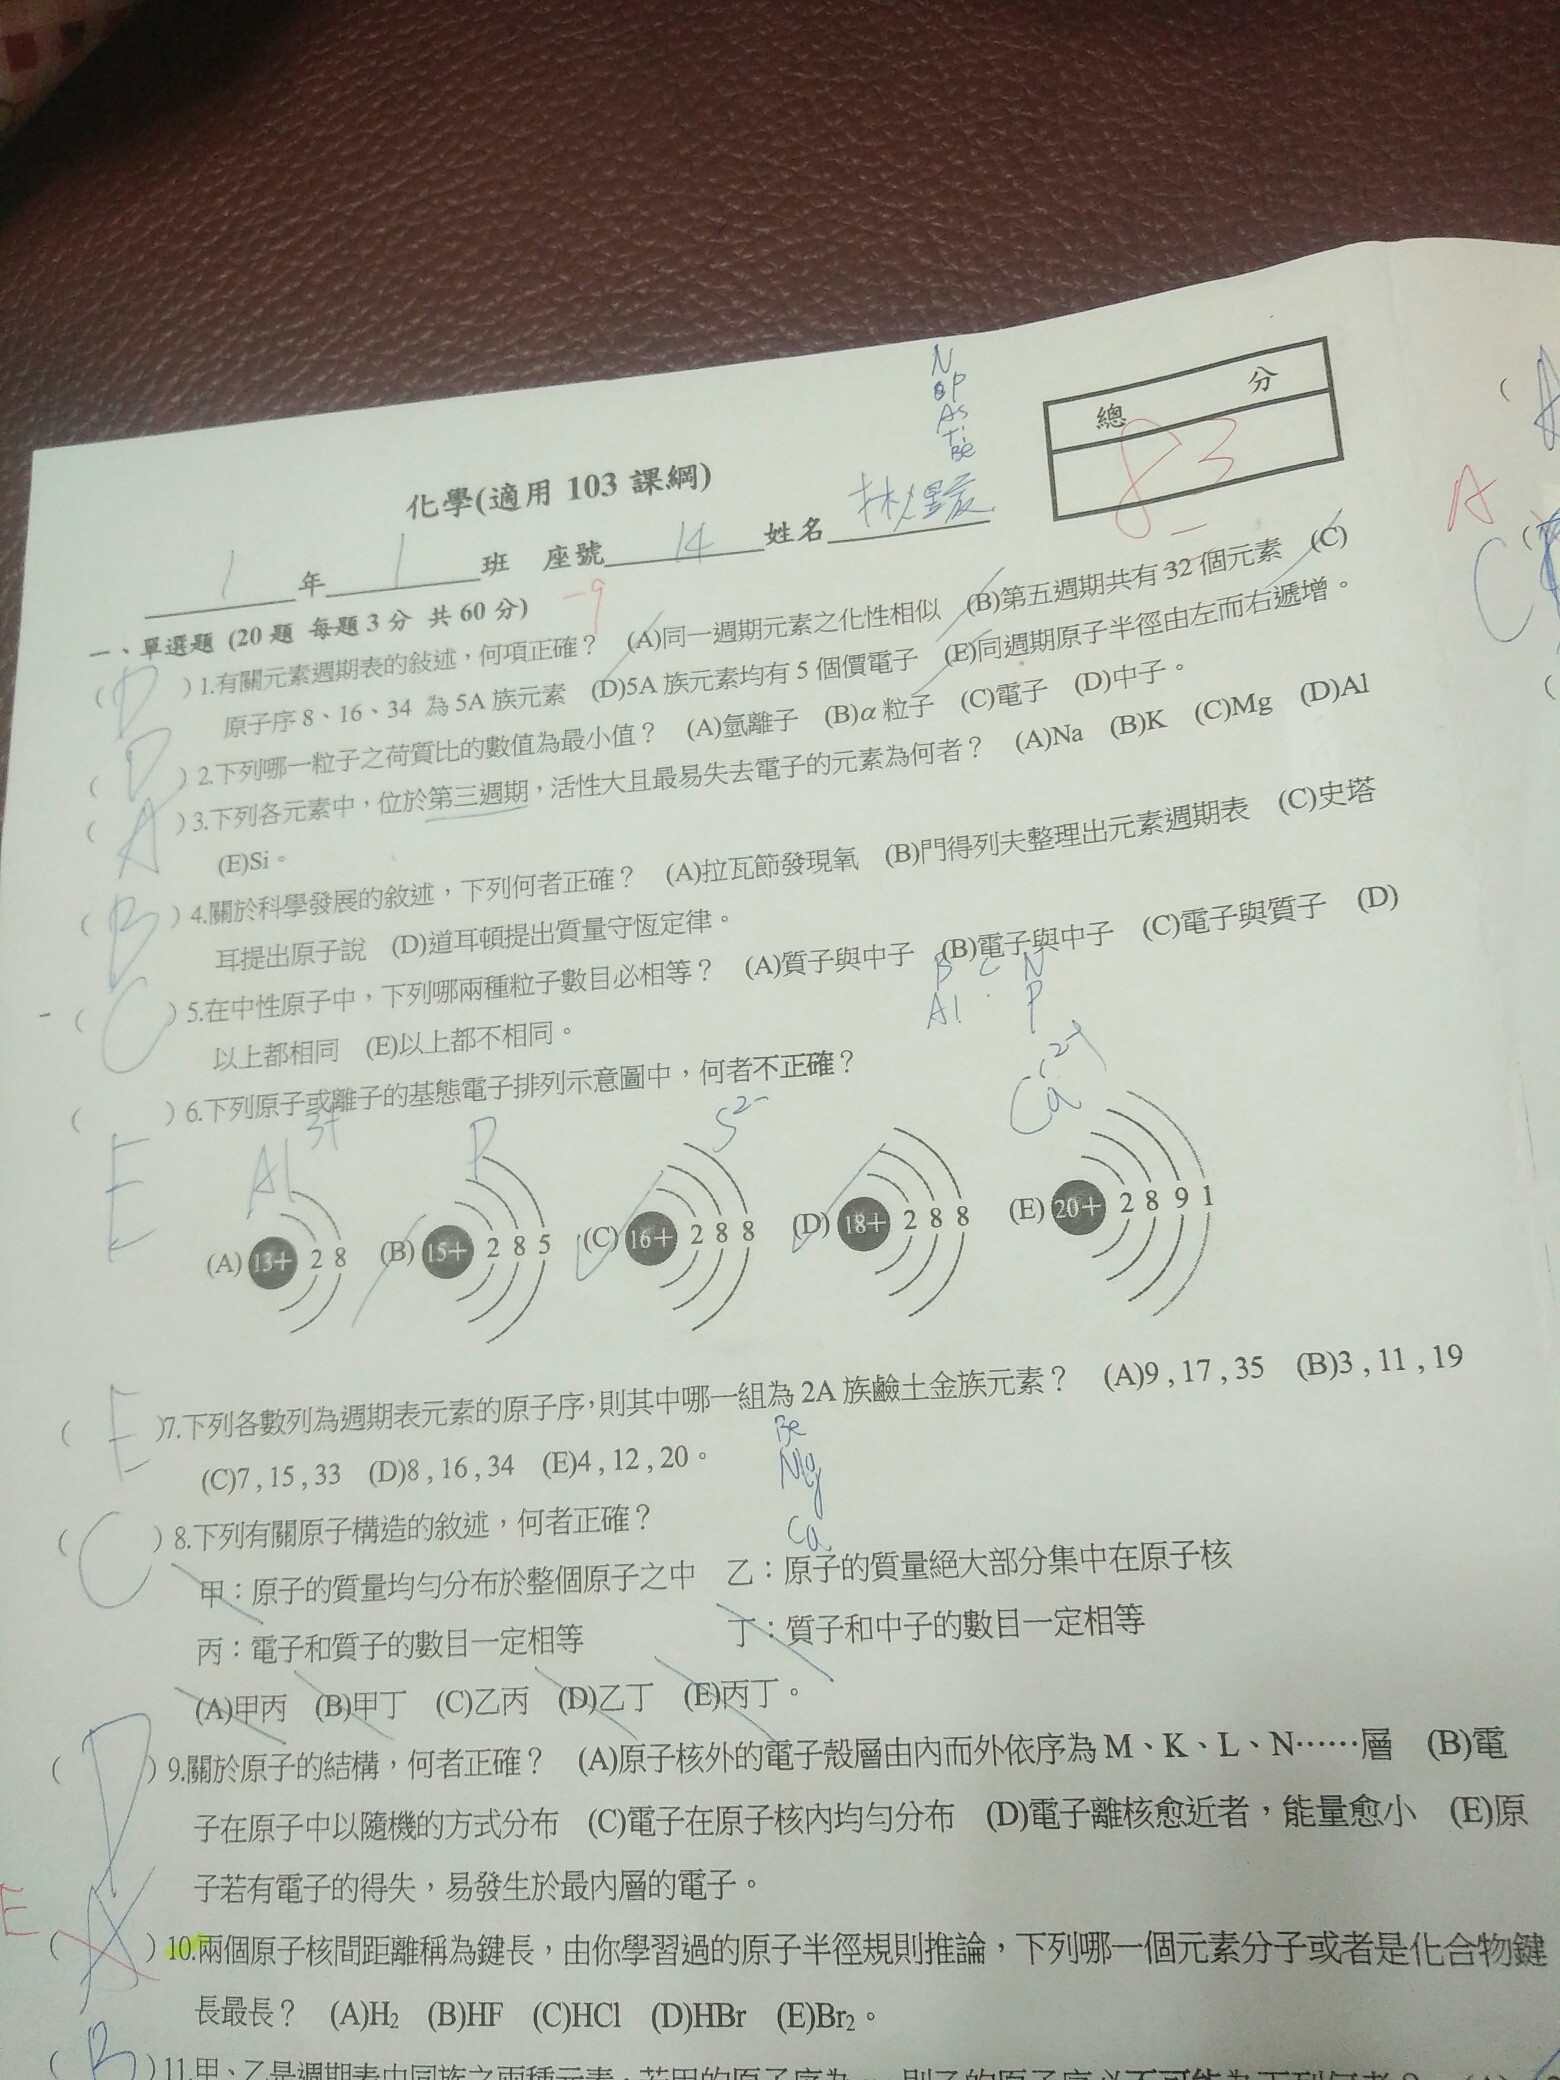 N
P
As
Be
總 分
83
化學(適用 103 課綱)
1 年 1 班 座號 14 姓名 林
一、單選題 (20 題 每題 3 分 共 60 分) -9
( D )1.有關元素週期表的敍述，何項正確？ (A)同一週期元素之化性相似 (B)第五週期共有 32 個元素 (C)
原子序 8、16、34 為 5A 族元素 (D)5A 族元素均有 5 個價電子 (E)同週期原子半徑由左而右遞增。
( D )2.下列哪一粒子之荷質比的數值為最小值？ (A)氫離子 (B)α 粒子 (C)電子 (D)中子。
( A )3.下列各元素中，位於第三週期，活性大且最易失去電子的元素為何者？ (A)Na (B)K (C)Mg (D)Al
(E)Si。
( B )4.關於科學發展的敘述，下列何者正確？ (A)拉瓦節發現氧 (B)門得列夫整理出元素週期表 (C)史塔
耳提出原子說 (D)道耳頓提出質量守恆定律。
( C )5.在中性原子中，下列哪兩種粒子數目必相等？ (A)質子與中子 (B)電子與中子 (C)電子與質子 (D)
以上都相同 (E)以上都不相同。
B C N
Al P
( E )6.下列原子或離子的基態電子排列示意圖中，何者不正確？
Al3+ P S2- Ca2+
(A) 13+ 2 8 (B) 15+ 2 8 5 (C) 16+ 2 8 8 (D) 18+ 2 8 8 (E) 20+ 2 8 9 1
( E )7.下列各數列為週期表元素的原子序，則其中哪一組為 2A 族鹼土金族元素？ (A)9 , 17 , 35 (B)3 , 11 , 19
(C)7 , 15 , 33 (D)8 , 16 , 34 (E)4 , 12 , 20。
Be
Mg
Ca
( C )8.下列有關原子構造的敘述，何者正確？
甲：原子的質量均勻分布於整個原子之中 乙：原子的質量絕大部分集中在原子核
丙：電子和質子的數目一定相等 丁：質子和中子的數目一定相等
(A)甲丙 (B)甲丁 (C)乙丙 (D)乙丁 (E)丙丁。
( D )9.關於原子的結構，何者正確？ (A)原子核外的電子殼層由內而外依序為 M、K、L、N……層 (B)電
子在原子中以隨機的方式分布 (C)電子在原子核內均勻分布 (D)電子離核愈近者，能量愈小 (E)原
子若有電子的得失，易發生於最內層的電子。
E ( A )10.兩個原子核間距離稱為鍵長，由你學習過的原子半徑規則推論，下列哪一個元素分子或者是化合物鍵
長最長？ (A)H2 (B)HF (C)HCl (D)HBr (E)Br2。
( B )11.甲、乙是週期表中同族之兩種元素，若甲的原子序為
A
C